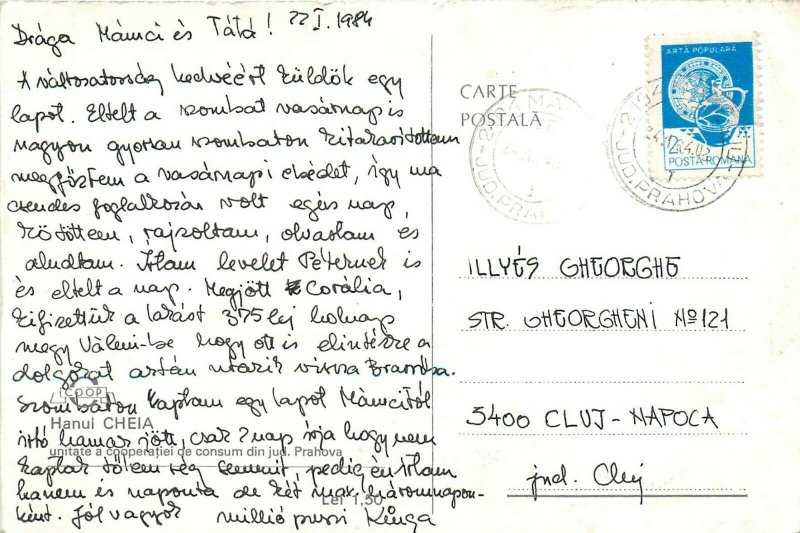 Drága Mámci és Tátá! 22 I. 1984
A változatosság kedvéért küldök egy
lapot. Eltelt a szombat vasárnap is
nagyon gyorsan szombaton kitakarítottam
megfőztem a vasárnapi ebédet, így ma
csendes foglalkozás volt egész nap,
kötöttem, rajzoltam, olvastam és
aludtam. Írtam levelet Péternek is
és eltelt a nap. Megjött Corália,
kifizettük a lakást 375 lej holnap
megy Văleni-be hogy ott is elintézze a
dolgokat aztán utazik vissza Brassóba.
Szombaton kaptam egy lapot Mámcitól
irtó hamar jött, csak 2 nap írja hogy nem
kaptak tőlem rég semmit, pedig én írtam
hanem és naponta de két max. háromnapon-
ként. Jól vagyok millió puszi Kinga
COOP
Hanul CHEIA
unitate a cooperației de consum din jud. Prahova
Lei 1,50
CARTE
POȘTALĂ
JUD. PRAHOVA
ARTĂ POPULARĂ
2L
POSTA ROMANA
ILLYÉS GHEORGHE
STR. GHEORGHENI Nº 121
3400 CLUJ-NAPOCA
jud. Cluj